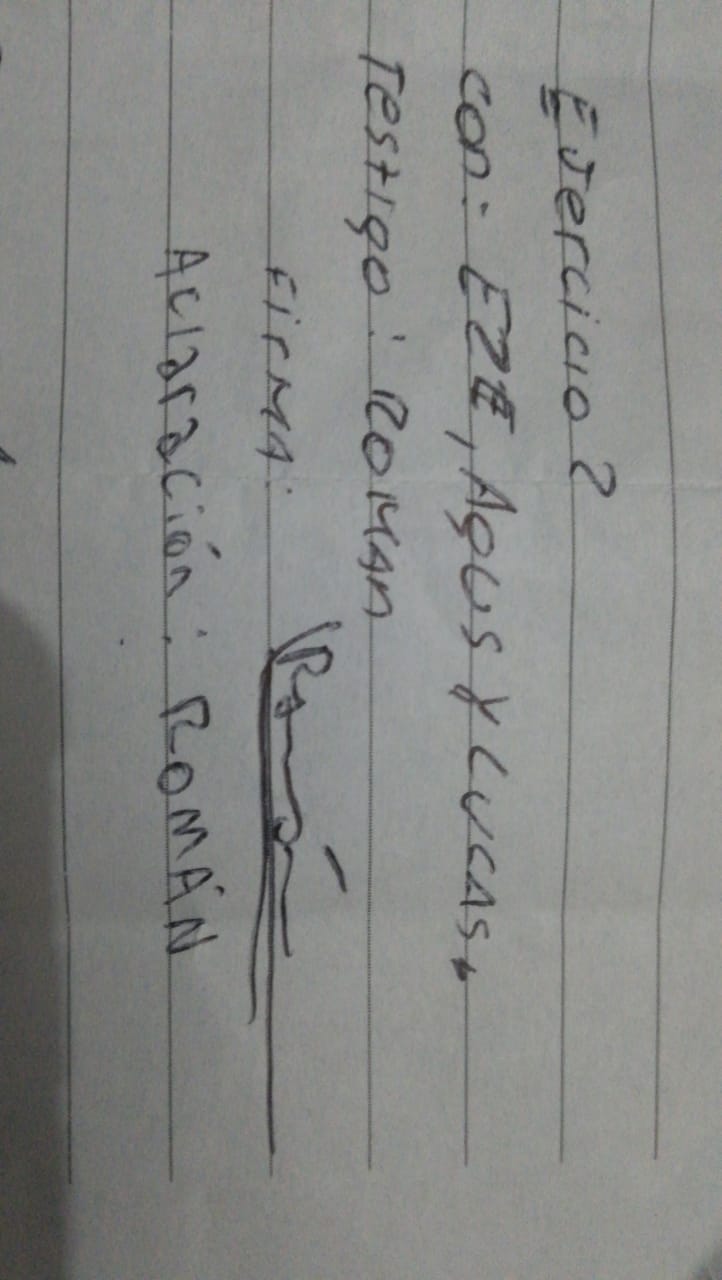 Ejercicio 2
con: EZE, AGUS Y LUCAS.
Testigo: ROMAN
FIRMA: Román
Aclaración: ROMÁN